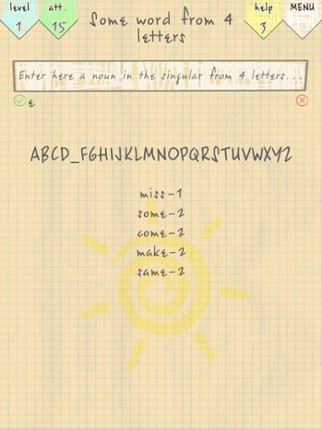 level
1
att.
15
Some word from 4
letters
help
3
MENU
Enter here a noun in the singular from 4 letters...
e
ABCD_FGHIJKLMNOPQRSTUVWXYZ
miss-1
some-2
come-2
make-2
same-2